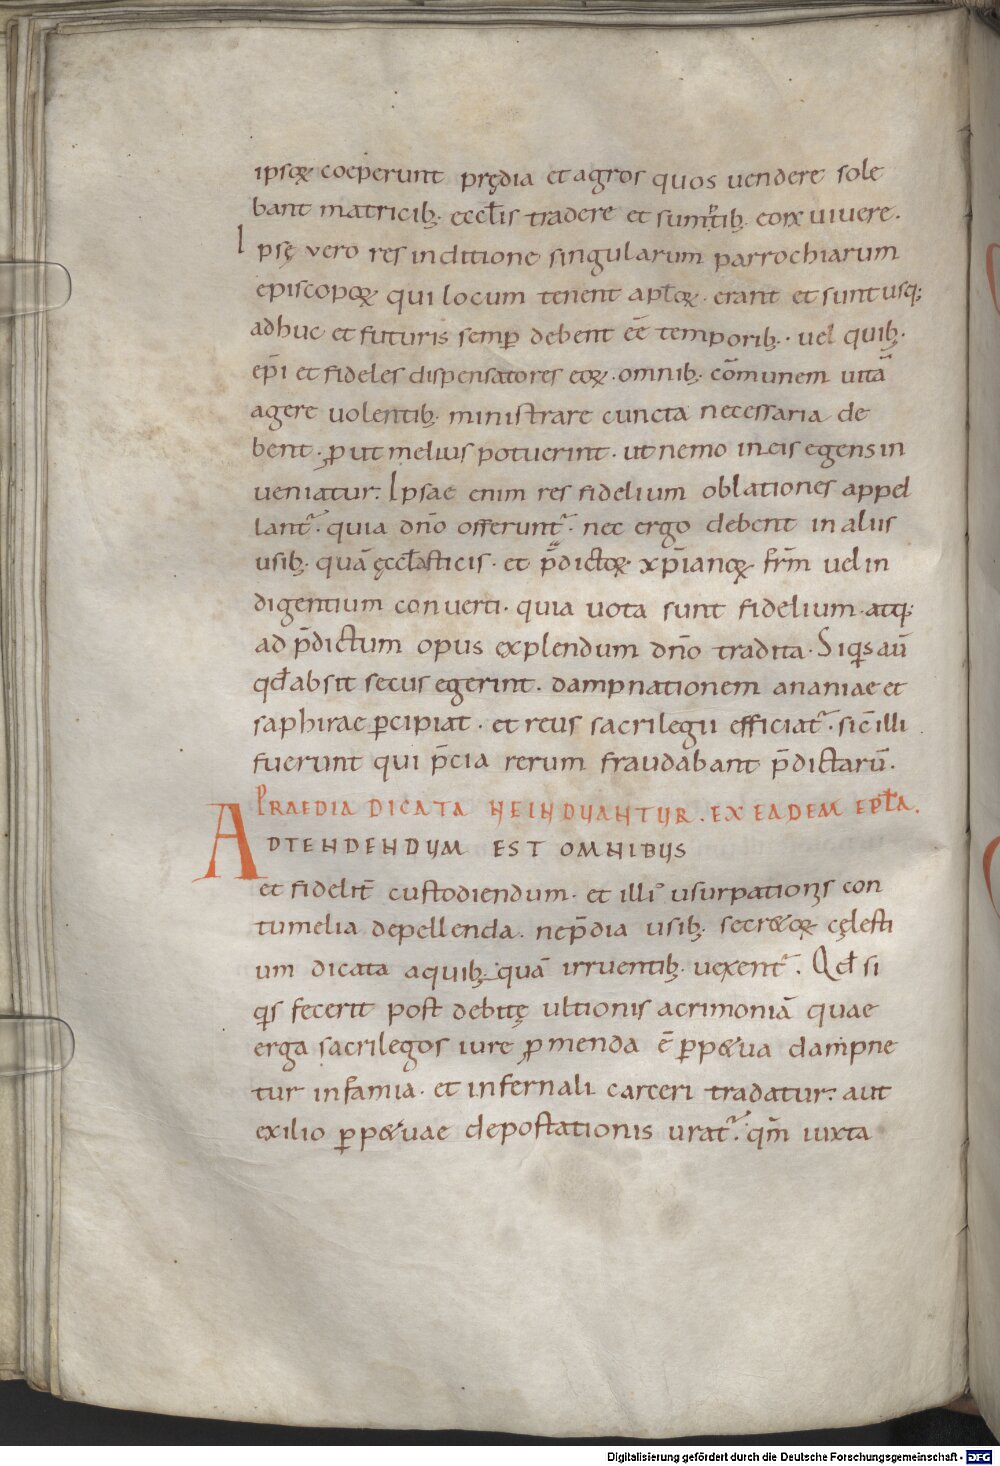 ipsoꝝ coeperunt prędia et agros quos uendere sole
bant matricib; eccłis tradere et sumtib; eorx uiuere.
Ipsę vero res in ditione singularum parrochiarum
episcopoꝝ qui locum tenent apłoꝝ. erant et sunt usq;
adhuc et futuris semꝑ debent eē temporib;. uel quib;.
epi̅ et fideles dispensatores eoꝝ. omnib;. com̅unem uitā
agere uolentib;. ministrare cuncta necessaria de
bent. ꝓut melius potuerint. ut nemo in eis egens in
ueniatur. Ipsae enim res fidelium oblationes appel
lant᷑. quia dn̅o offerunt᷑. nec ergo debent in aliis
usib;. quā ęccłasticis. et p̅dictoꝝ. xp̅ianoꝝ. frm̅ uel in
digentium conuerti. quia uota sunt fidelium. atq;
ad p̅dictum opus explendum dn̅o tradita. Siqꝭ aū
qđ absit secus egerint. dampnationem ananiae et
saphirae ꝑcipiat. et reus sacrilegii efficiat᷑. sic̅ illi
fuerunt qui p̅cia rerum fraudabant p̅dictarū.
PRAEDIA DICATA NE INDUANTUR. EX EADEM EPŁA.
ADTENDENDUM EST OMNIBUS
et fidelit̅ custodiendum. et illiꝰ usurpationis con
tumelia depellenda. ne p̅dia usib;. secr&oꝝ cęlesti
um dicata a quib;. quā irruentib;. uexent᷑. Qđ si
qꝭ fecerit post debitę ultionis acrimoniā quae
erga sacrilegos iure ꝓmenda ē ꝑp&ua dampne
tur infamia. et infernali carceri tradatur. aut
exilio ꝑp&uae depostationis urat᷑. qm̅ iuxta
Digitalisierung gefördert durch die Deutsche Forschungsgemeinschaft - DFG